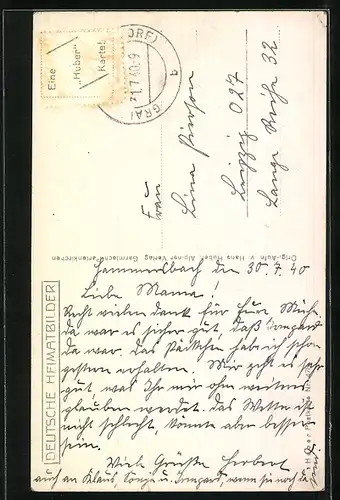 Eine
„Huber"
Karte!
GRAI
31.7.40-9
b
Frau
Lina
Leipzig O27
Lange Reihe 32
DEUTSCHE HEIMATBILDER
Orig.-Aufn. v. Hans Huber, Alpiner Verlag Garmisch-Partenkirchen
Hammersbach den 30.7.40
Liebe Mama!
Recht vielen Dank für Eure Mühe.
da war es sicher gut, daß Irmgard
da war. Das Päckchen hab ich schon
gestern erhalten. Mir geht es sehr
gut, was Ihr mir ohne weiteres
glauben werdet. Das Wetter ist
nicht schlecht, könnte aber besser
sein.
Viele Grüße Herbert
auch an Klaus, Sonja u. Irmgard, wenn sie noch da